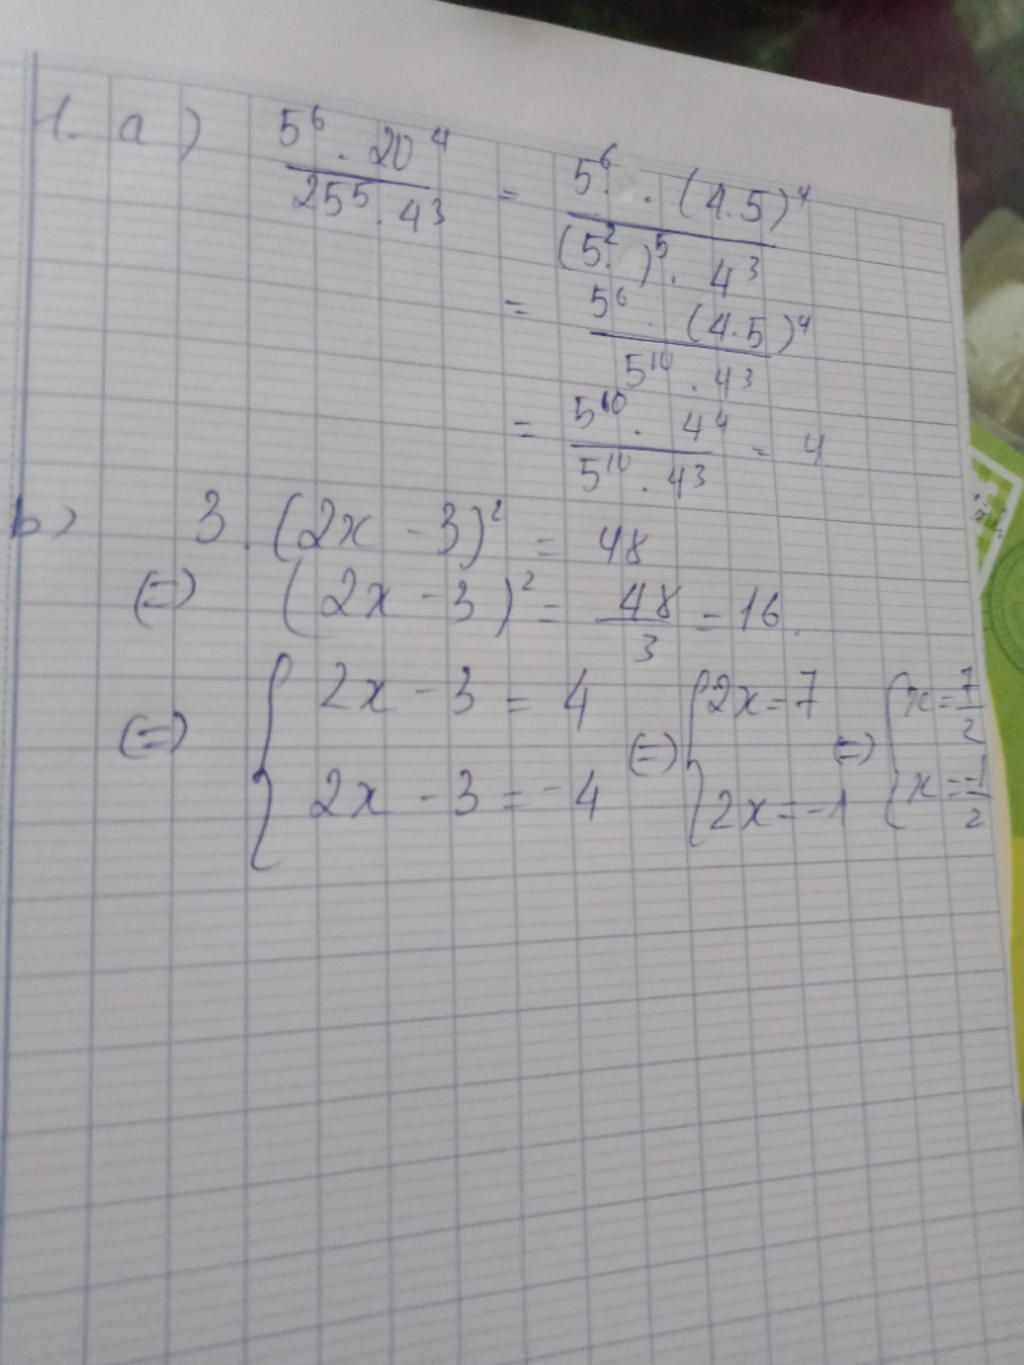 1. a) 5⁶ . 20⁴ / 25⁵ . 4³ = 5⁶ . (4.5)⁴ / (5²)⁵ . 4³
= 5⁶ . (4.5)⁴ / 5¹⁰ . 4³
= 5¹⁰ . 4⁴ / 5¹⁰ . 4³ = 4
b) 3 . (2x - 3)² = 48
(=) (2x - 3)² = 48 / 3 = 16.
(=) { 2x - 3 = 4 (=) { 2x = 7 (=) { x = 7/2
2x - 3 = -4 2x = -1 x = -1/2